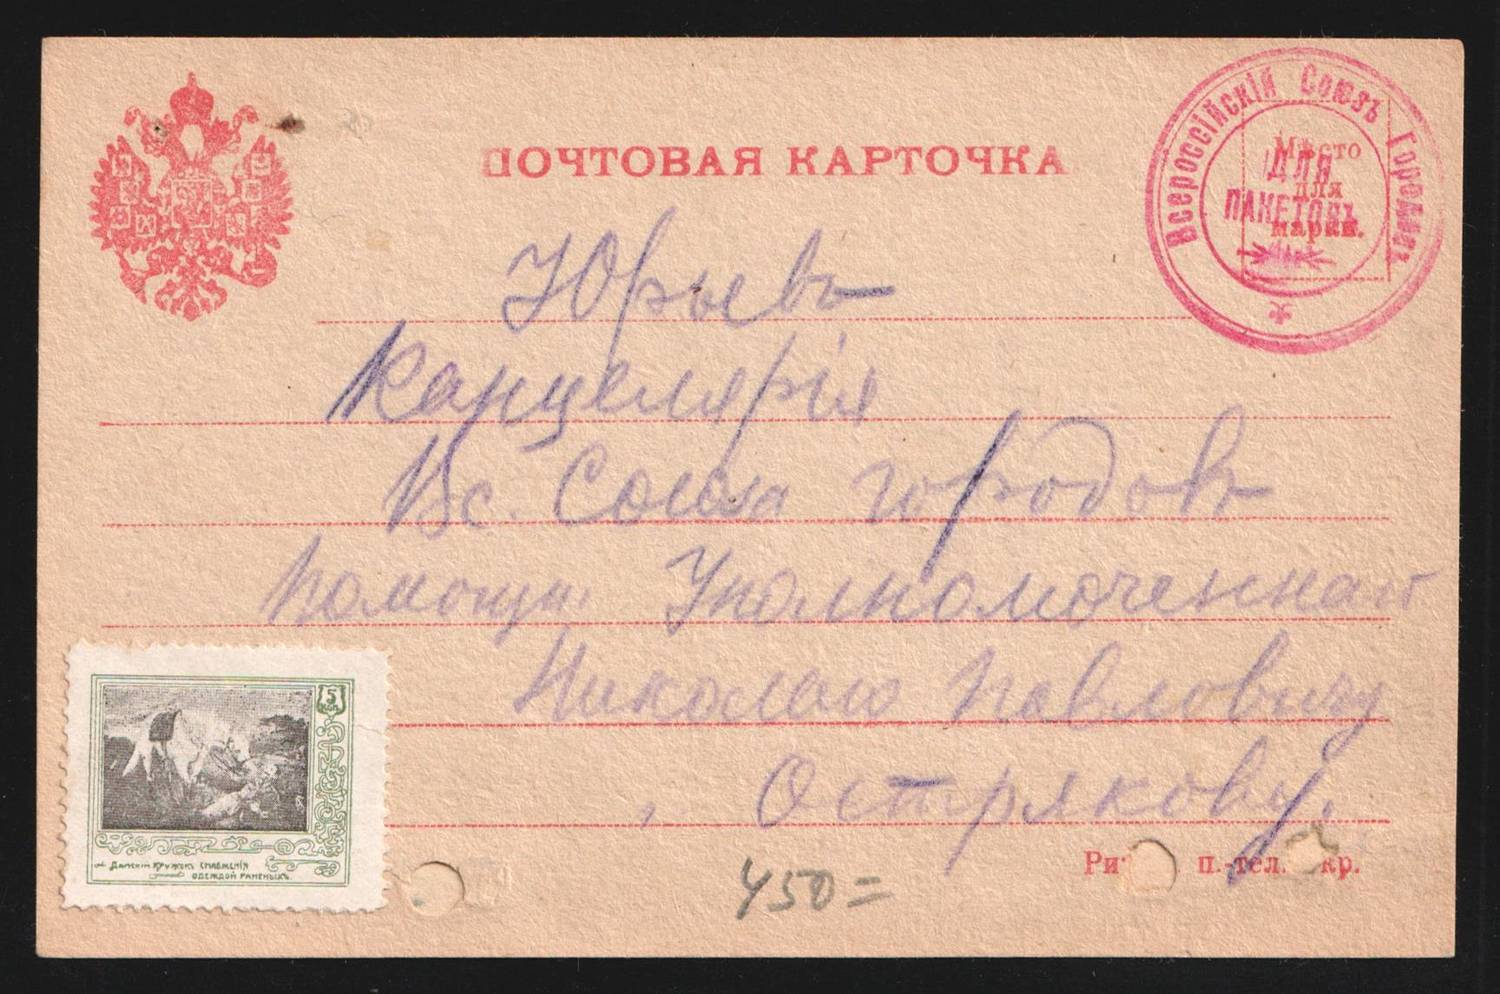 ПОЧТОВАЯ КАРТОЧКА
Всероссійскій Союзъ Городовъ
ДЛЯ
ПАКЕТОВЪ
Мѣсто
для
марки.
Юрьевъ
Канцелярія
Вс. Союза городовъ
помощн. Уполномоченнаго
Николаю Павловичу
Острякову.
5
Дамскій кружокъ снабженія
одеждой раненыхъ.
450=
п.-тел. кр.